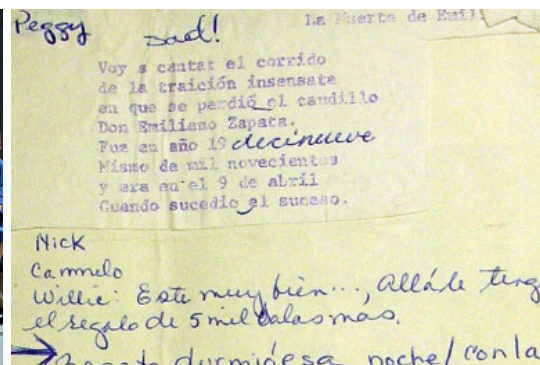 Peggy
sad!
La Muerta de Emil
Voy a cantar el corrido
de la traición insensata
en que se perdió el caudillo
Don Emiliano Zapata.
Fue en año 19 decinueve
Mismo de mil novecientos
y era en el 9 de abril
Cuando sucedio el suceso.
Nick
Cammelo
Willie: Este muy bien..., allá le teng
el regalo de 5 mil balas mas.
durmió esa noche/con la